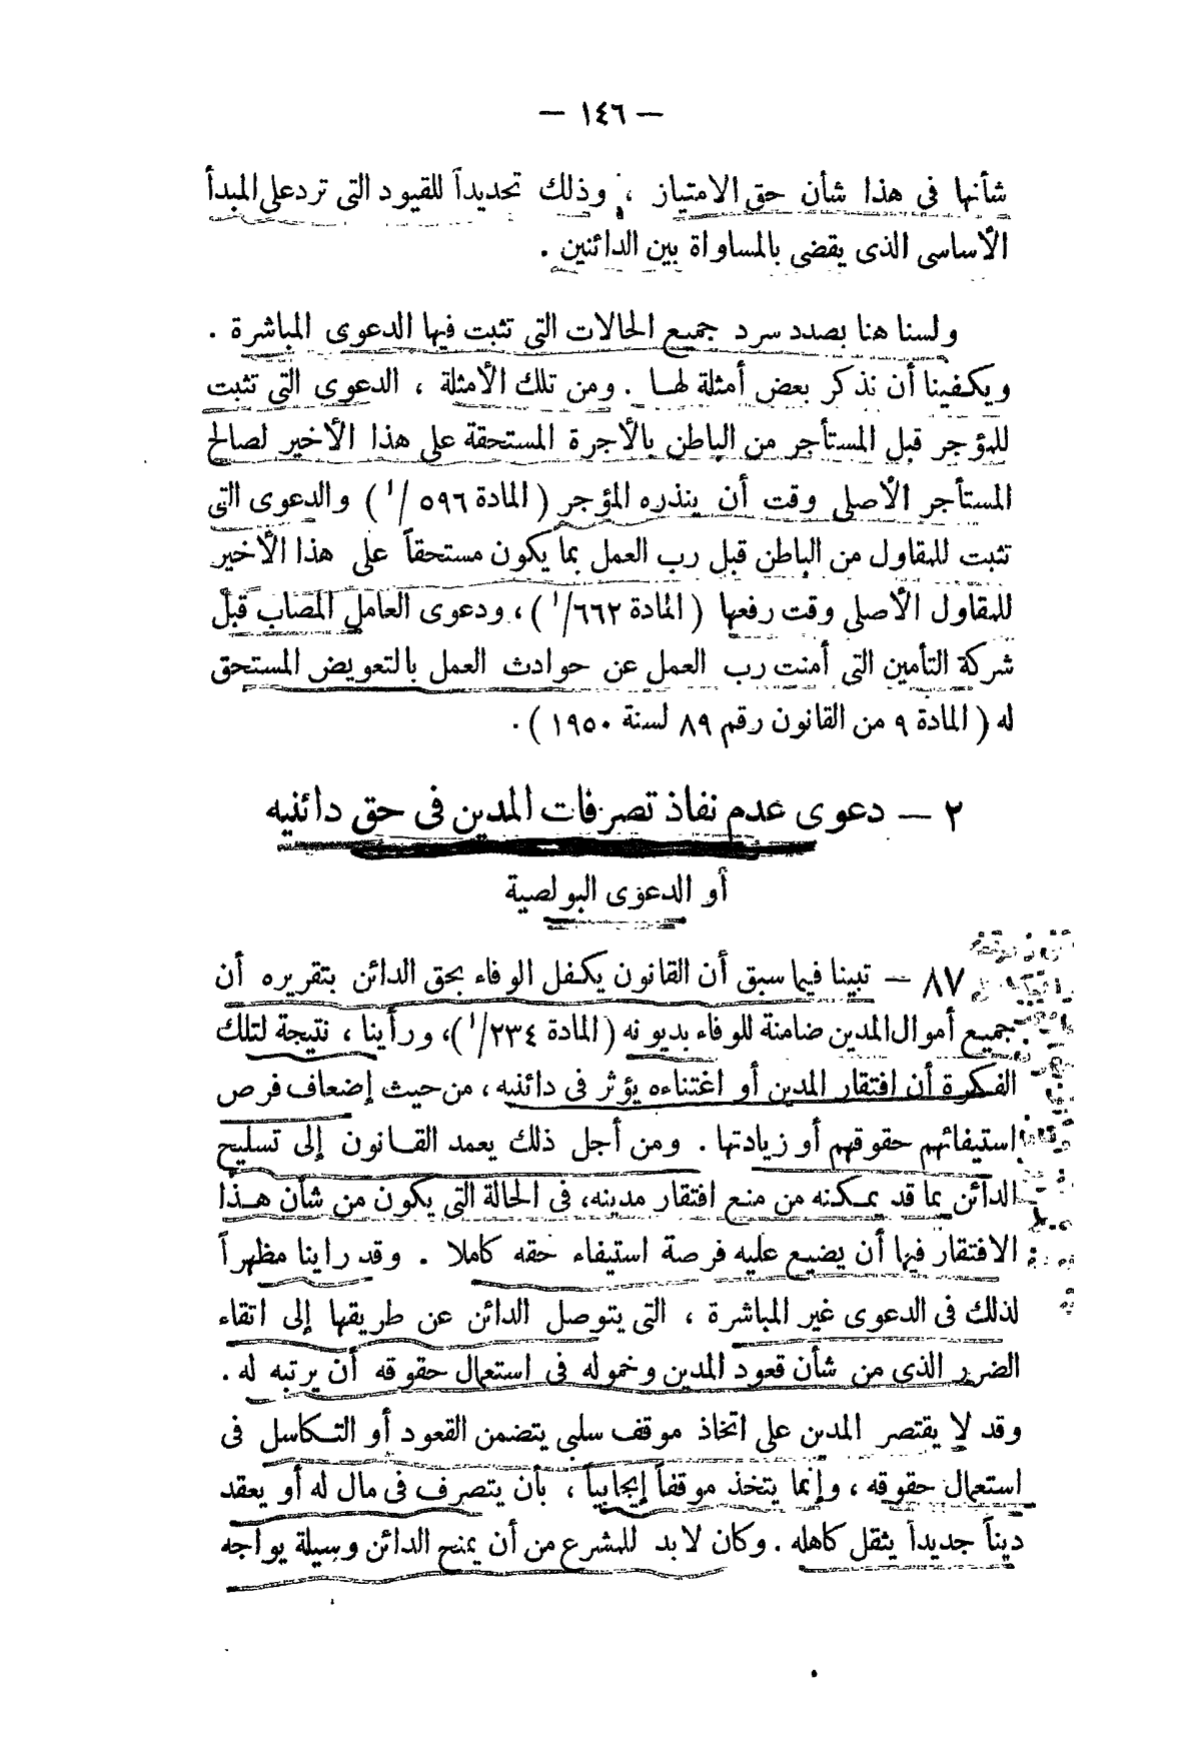 — ١٤٦ —
شأنها فى هذا شأن حق الامتياز ، وذلك تحديداً للقيود التى ترد على المبدأ
الأساسى الذى يقضى بالمساواة بين الدائنين .
ولسنا هنا بصدد سرد جميع الحالات التى تثبت فيها الدعوى المباشرة .
ويكفينا أن نذكر بعض أمثلة لها . ومن تلك الأمثلة ، الدعوى التى تثبت
للمؤجر قبل المستأجر من الباطن بالأجرة المستحقة على هذا الأخير لصالح
المستأجر الأصلى وقت أن ينذره المؤجر ( المادة ٥٩٦ /١ ) والدعوى التى
تثبت للمقاول من الباطن قبل رب العمل بما يكون مستحقاً على هذا الأخير
للمقاول الأصلى وقت رفعها ( المادة ٦٦٢/١ ) ، ودعوى العامل المصاب قبل
شركة التأمين التى أمنت رب العمل عن حوادث العمل بالتعويض المستحق
له ( المادة ٩ من القانون رقم ٨٩ لسنة ١٩٥٠ ) .
٢ — دعوى عدم نفاذ تصرفات المدين فى حق دائنيه
أو الدعوى البولصية
٨٧ — تبينا فيما سبق أن القانون يكفل الوفاء بحق الدائن بتقريره أن
جميع أموال المدين ضامنة للوفاء بديونه ( المادة ٢٣٤/١ ) ، ورأينا ، نتيجة لتلك
الفكرة أن افتقار المدين أو اغتناءه يؤثر فى دائنيه ، من حيث إضعاف فرص
استيفائهم حقوقهم أو زيادتها . ومن أجل ذلك يعمد القانون إلى تسليح
الدائن بما قد يمكنه من منع افتقار مدينه ، فى الحالة التى يكون من شأن هذا
الافتقار فيها أن يضيع عليه فرصة استيفاء حقه كاملا . وقد راينا مظهراً
لذلك فى الدعوى غير المباشرة ، التى يتوصل الدائن عن طريقها إلى اتقاء
الضرر الذى من شأن قعود المدين وخموله فى استعمال حقوقه أن يرتبه له .
وقد لا يقتصر المدين على اتخاذ موقف سلبى يتضمن القعود أو التكاسل فى
استعمال حقوقه ، وإنما يتخذ موقفاً إيجابياً ، بأن يتصرف فى مال له أو يعقد
ديناً جديداً يثقل كاهله . وكان لابد للمشرع من أن يمنح الدائن وسيلة يواجه